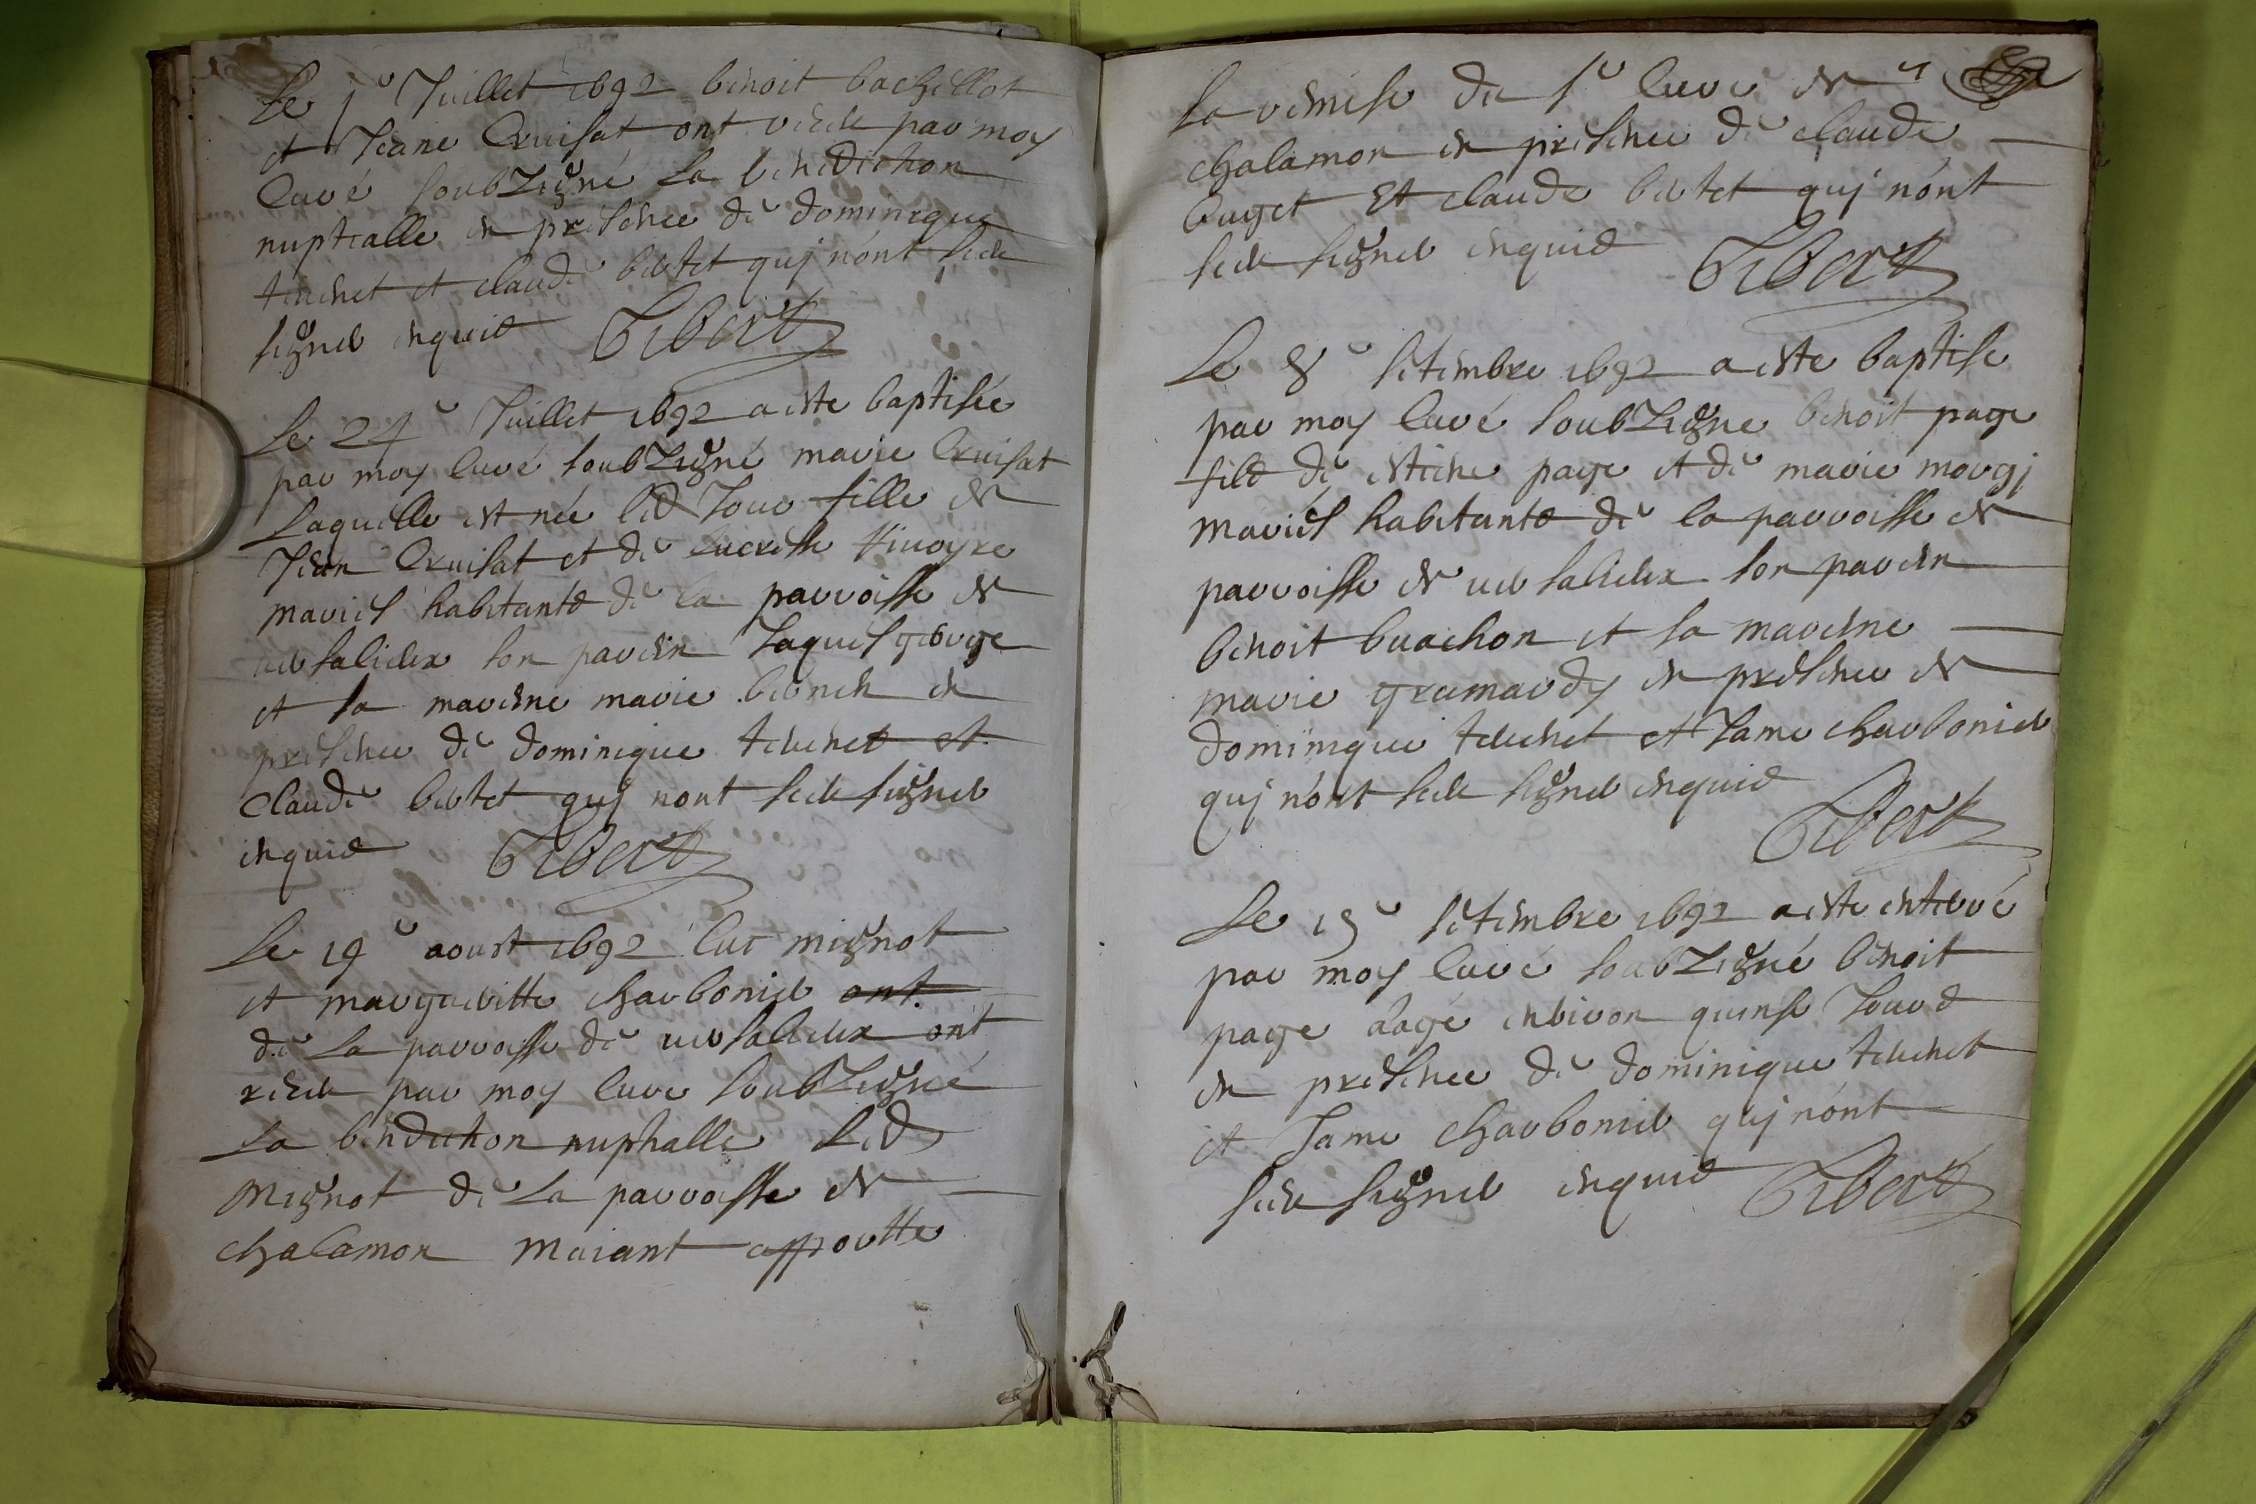 Le 1e Juillet 1692 benoit bachellot
et Jeane Cruisat ont receu par moy
Curé soubZigné la benediction
nuptialle en presence de dominique
teuenet et claude bertet quj nónt sceu
signer enquis Gibert
Le 24e Juillet 1692 a este baptisée
par moy Curé soubZigné marie Cruisat
Laquelle est née led Jour fille de
Jean Cruisat et de Lucresse
mariés habitants de la parroisse de
versalieux son parein Jaques george
et sa mareine marie en
presence de dominique teuenet et
Claude bertet quj nont sceu signer
enquis Gibert
Le 19e aoust 1692 luc mignot
et margueritte charbonier ont
de La parroisse de versalieux ont
receu par moy Curé soubZigné
La bendiction nuptialle Led
Mignot de La parroisse de
chalamon Maiant apportte
La remise du Sr Curé de
chalamon en presence de claude
buget Et claude bertet quj nónt
sceu signer enquis Gibert
Le 8e setembre 1692 a este baptisé
par moy Curé soubZigne benoit page
fils de estiene page et de marie
Mariés habitants de la parroisse de
parroisse de versalieux son parein
benoit buachon et sa mareine
marie gramardy en presence de
dominique teuenet et Jame charbonier
quj nónt sceu signer enquis
Gibert
Le 15e setembre 1692 a este enterré
par moy Curé soubZigné benoit
page aagé environ quinse Jours
en presence de dominique teuenet
et Jame charbonier quj nónt
sceu signer enquis Gibert